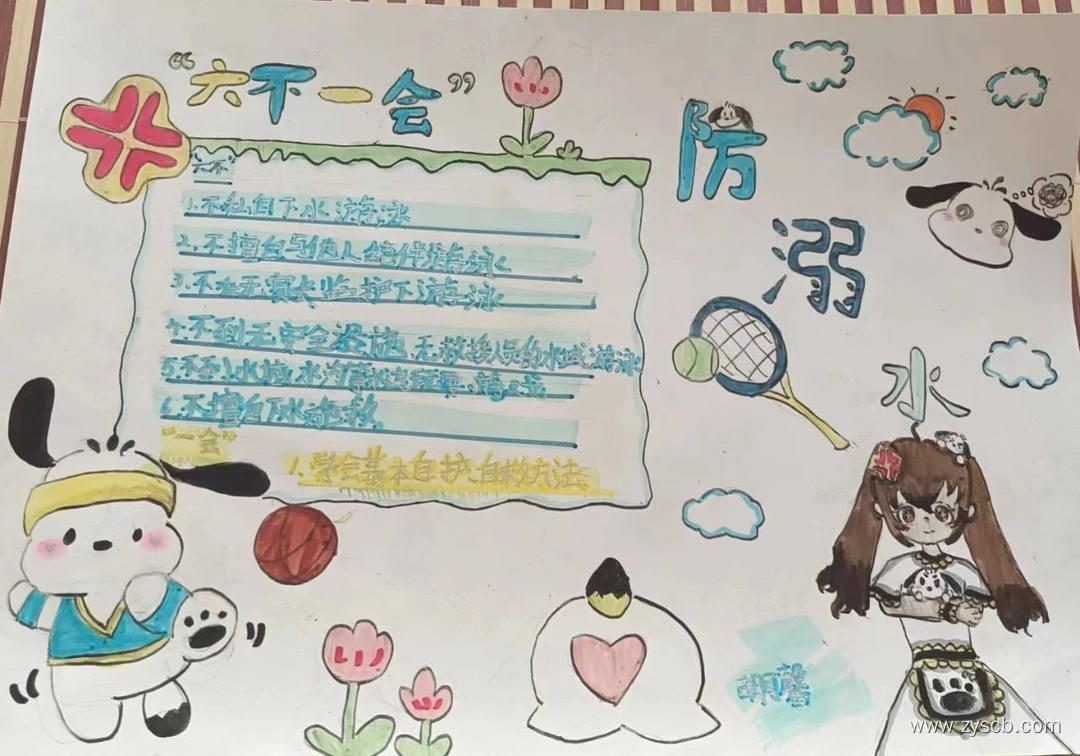 “六不一会”
防
溺
水
“六不”
1.不私自下水游泳
2.不擅自与他人结伴游泳
3.不在无家长监护下游泳
4.不到无安全设施,无救援人员的水域游泳
5.不到水域,水沟
6.不擅自下水施救.
“一会”
1.学会基本自护,自救方法
胡馨
www.zyscb.com